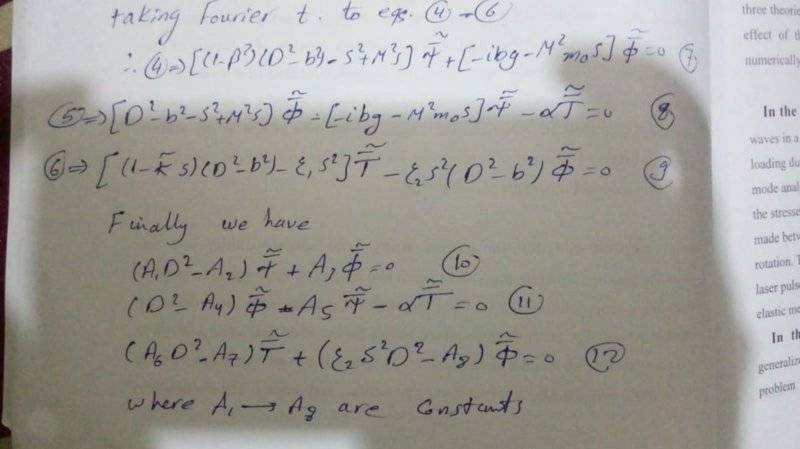 taking Fourier t. to eqs. ④ → ⑥
∴ ④ ⇒ [(1-β²)(D²-b²) - S² + M²S] Ψ̿̃ + [-ibg - M²m₀S] Φ̿̃ = 0 ⑦
⑤ ⇒ [D²-b²-S²+M²S] Φ̿̃ - [-ibg - M²m₀S] Ψ̿̃ - αT̿̃ = 0 ⑧
⑥ ⇒ [(1-K̃S)(D²-b²) - ξ₁S²] T̿̃ - ξ₂S²(D²-b²) Φ̿̃ = 0 ⑨
Finally we have
(A₁D²-A₂) Ψ̿̃ + A₃Φ̿̃ = 0 ⑩
(D²-A₄) Φ̿̃ - A₅ Ψ̿̃ - αT̿̃ = 0 ⑪
(A₆D²-A₇) T̿̃ + (ξ₂S²D²-A₈) Φ̿̃ = 0 ⑫
where A₁ → A₈ are constants
three theorie
effect of th
numerically
In the
waves in a
loading du
mode anal
the stresse
made betw
rotation. T
laser puls
elastic me
In th
generaliz
problem